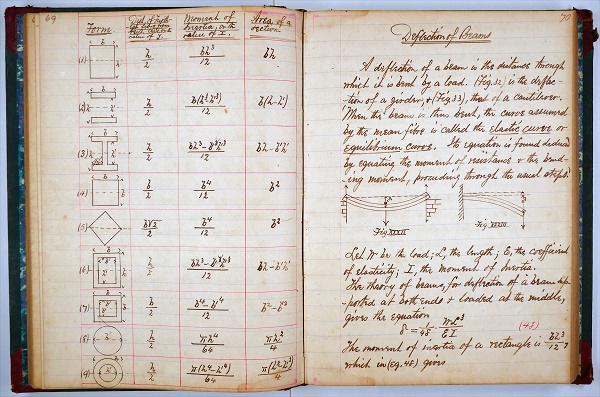 69
Form
Moment of
Inertia, or the
value of I.
Area of a
section.
(1) h/2 bh³/12 bh
(2) h/2 b(h³-h'³)/12 b(h-h')
(3) h/2 bh³-b'h'³/12 bh-b'h'
(4) b/2 b⁴/12 b²
(5) b√2/2 b⁴/12 b²
(6) h/2 bh³-b'h'³/12 bh-b'h'
(7) b/2 b⁴-b'⁴/12 b²-b'²
(8) h/2 πh⁴/64 πh²/4
(9) h/2 π(h⁴-h'⁴)/64 π(h²-h'²)/4
70
Deflection of Beams
A deflection of a beam is the distance through
which it is bent by a load. (Fig. 32) is the deflec-
-tion of a girder, & (Fig. 33), that of a cantilever.
When the beam is thus bent, the curve assumed
by the mean fibre is called the elastic curve or
equilibrium curve. Its equation is found
by equating the moment of resistance & the bend-
ing moment, proceeding through the usual steps.
Fig XXXII
Fig XXXIII
Let W be the load; L, the length; E, the coefficient
of elasticity; I, the Moment of Inertia.
The theory of beams, for deflection of a beam sup-
-ported at both ends & loaded at the middle,
gives the equation
δ = 1/48 · WL³/EI (48)
The moment of inertia of a rectangle is bh³/12,
which in (Eq. 48) gives